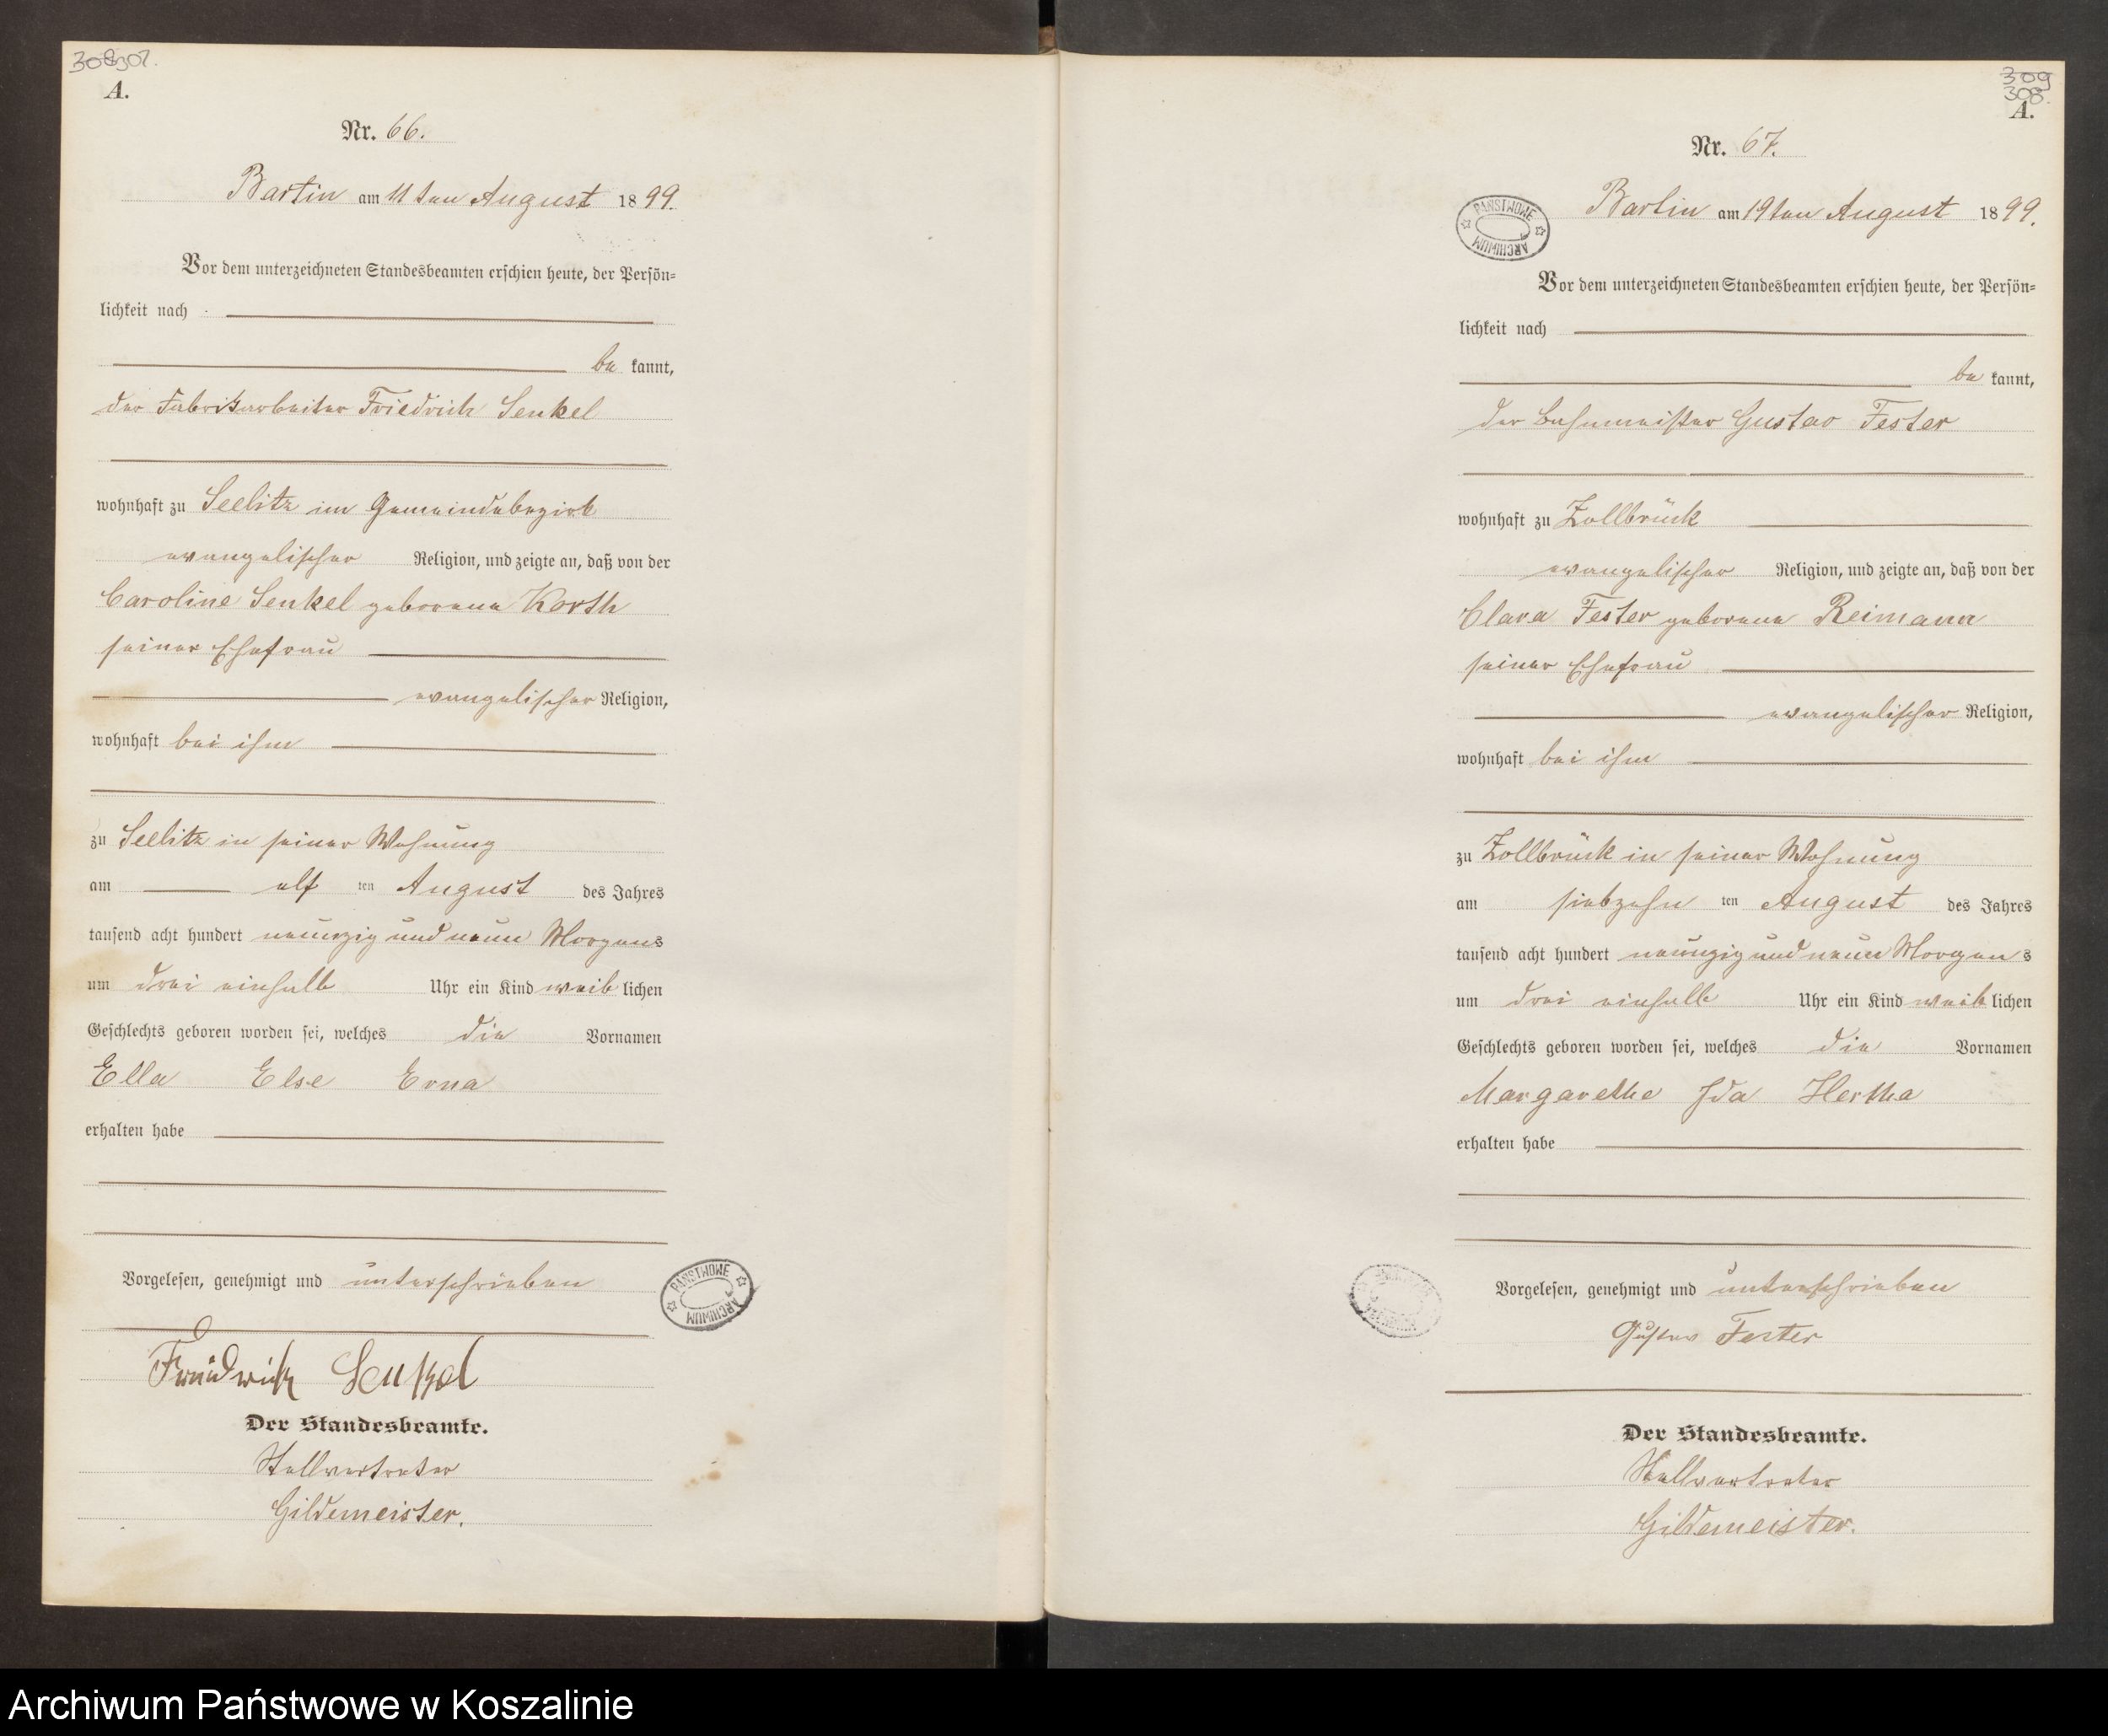 308 307.
A.
Nr. 66.
Bartin am 11ten August 1899.
Vor dem unterzeichneten Standesbeamten erschien heute, der Persön=
lichkeit nach
be kannt,
der Fabrikarbeiter Friedrich Senkel
wohnhaft zu Seelitz im Gemeindebezirk
evangelischer Religion, und zeigte an, daß von der
Caroline Senkel geborene Korth
seiner Ehefrau
evangelischer Religion,
wohnhaft bei ihm
zu Seelitz in seiner Wohnung
am elf ten August des Jahres
tausend acht hundert neunzig und neun Morgens
um drei einhalb Uhr ein Kind weib lichen
Geschlechts geboren worden sei, welches die Vornamen
Ella Else Erna
erhalten habe
Vorgelesen, genehmigt und unterschrieben
Friedrich Senkel
Der Standesbeamte.
Stellvertreter
Gildemeister.
PAŃSTWOWE ARCHIWUM
309
308.
A.
Nr. 67.
PAŃSTWOWE ARCHIWUM
Bartin am 19ten August 1899.
Vor dem unterzeichneten Standesbeamten erschien heute, der Persön=
lichkeit nach
be kannt,
der Bahnmeister Gustav Fester
wohnhaft zu Zollbrück
evangelischer Religion, und zeigte an, daß von der
Clara Fester geborene Reimann
seiner Ehefrau
evangelischer Religion,
wohnhaft bei ihm
zu Zollbrück in seiner Wohnung
am siebzehn ten August des Jahres
tausend acht hundert neunzig und neun Morgens
um drei einhalb Uhr ein Kind weib lichen
Geschlechts geboren worden sei, welches die Vornamen
Margarethe Ida Hertha
erhalten habe
Vorgelesen, genehmigt und unterschrieben
Gustav Fester
Der Standesbeamte.
Stellvertreter
Gildemeister.
Archiwum Państwowe w Koszalinie